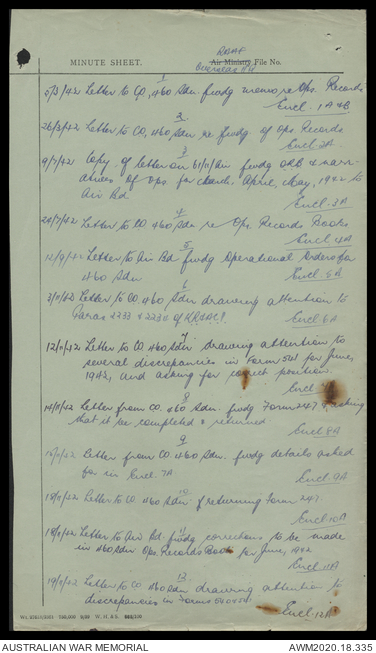 RAAF
MINUTE SHEET. Air Ministry File No.
Overseas HQ
1
5/3/42 Letter to CO, 460 Sdn. fwdg memo re Ops. Records
Encl. 1A & B
2
26/3/42 Letter to CO, 460 Sdn re fwdg of Ops. Records
Encl. 2A
3
9/7/42 Copy of letter on 61/11/Air fwdg ORB & narr-
atives of Ops for March, April, May, 1942 to
Air Bd
Encl. 3A
4
24/7/42 Letter to CO 460 Sdn re Ops. Records Books
Encl 4A
5
12/9/42 Letter to Air Bd fwdg Operational Orders for
460 Sdn
Encl. 5A
6
2/11/42 Letter to CO, 460 Sdn drawing attention to
Paras 2233 & 2234 of KR&ACI
Encl. 6A
7
12/11/42 Letter to CO 460 Sdn drawing attention to
several discrepancies in Form 541 for June,
1942, and asking for correct position.
Encl
8
14/11/42 Letter from CO. 460 Sdn. fwdg Form 247 & asking
that it be completed & returned
Encl 8A
9
16/11/42 Letter from CO. 460 Sdn. fwdg details asked
for in Encl. 7A.
Encl. 9A
10
18/11/42 Letter to CO 460 Sdn returning Form 247
Encl. 10A
11
18/11/42 Letter to Air Bd. fwdg corrections to be made
in 460 Sdn Ops. Records Book for June, 1942
Encl. 11A
12
19/11/42 Letter to CO 460 Sdn drawing attention to
discrepancies in Forms 540 & 541
Encl. 12A
AUSTRALIAN WAR MEMORIAL AWM2020.18.335